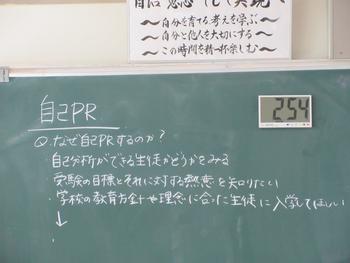 〜自分を育てる考えを学ぶ〜
〜自分と他人を大切にする〜
〜この時間を精一杯楽しむ〜
254
自己PR
Q.なぜ自己PRするのか?
・自己分析ができる生徒かどうかをみる
・受験の目標とそれに対する熱意を知りたい
・学校の教育方針や理念に合った生徒に入学してほしい
↓
・